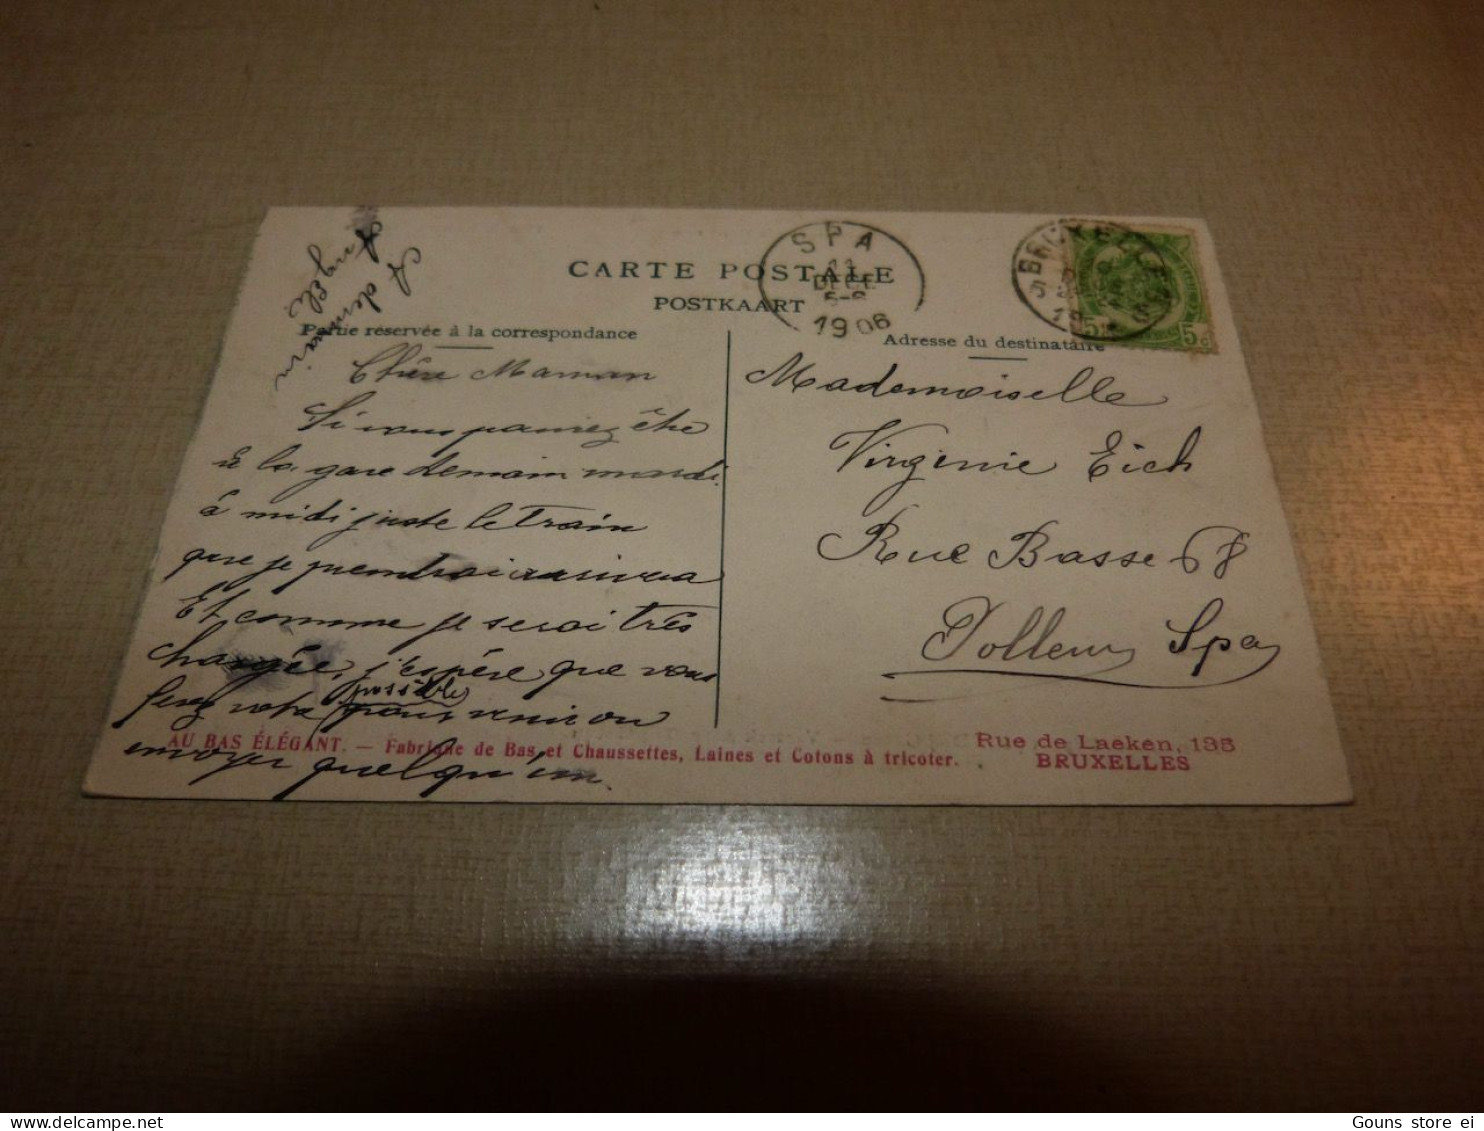 CARTE POSTALE
POSTKAART
Partie réservée à la correspondance
Adresse du destinataire
SPA
11
DECE
1906
BRUXELLES
5c
A demain
Angèle
Chère Maman
Si vous pouviez être
à la gare demain mardi
à midi juste le train
que je prendrai arrivera
Et comme je serai très
chargée, j'espère que vous
ferez votre possible
pour venir ou
envoyer quelqu'un.
Mademoiselle
Virginie Eich
Rue Basse 68
Spa
AU BAS ÉLÉGANT. — Fabrique de Bas et Chaussettes, Laines et Cotons à tricoter.
Rue de Laeken, 135
BRUXELLES
Gouns store ei